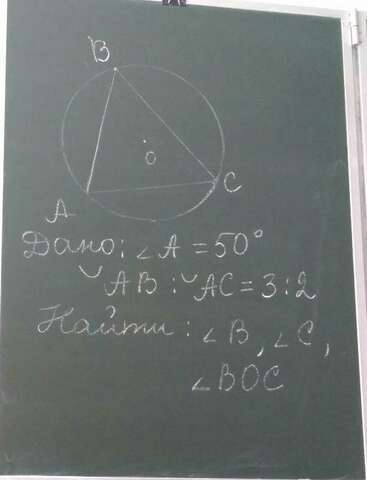 B
O
C
A
Дано: ∠A = 50°
◡AB : ◡AC = 3 : 2
Найти: ∠B, ∠C,
∠BOC